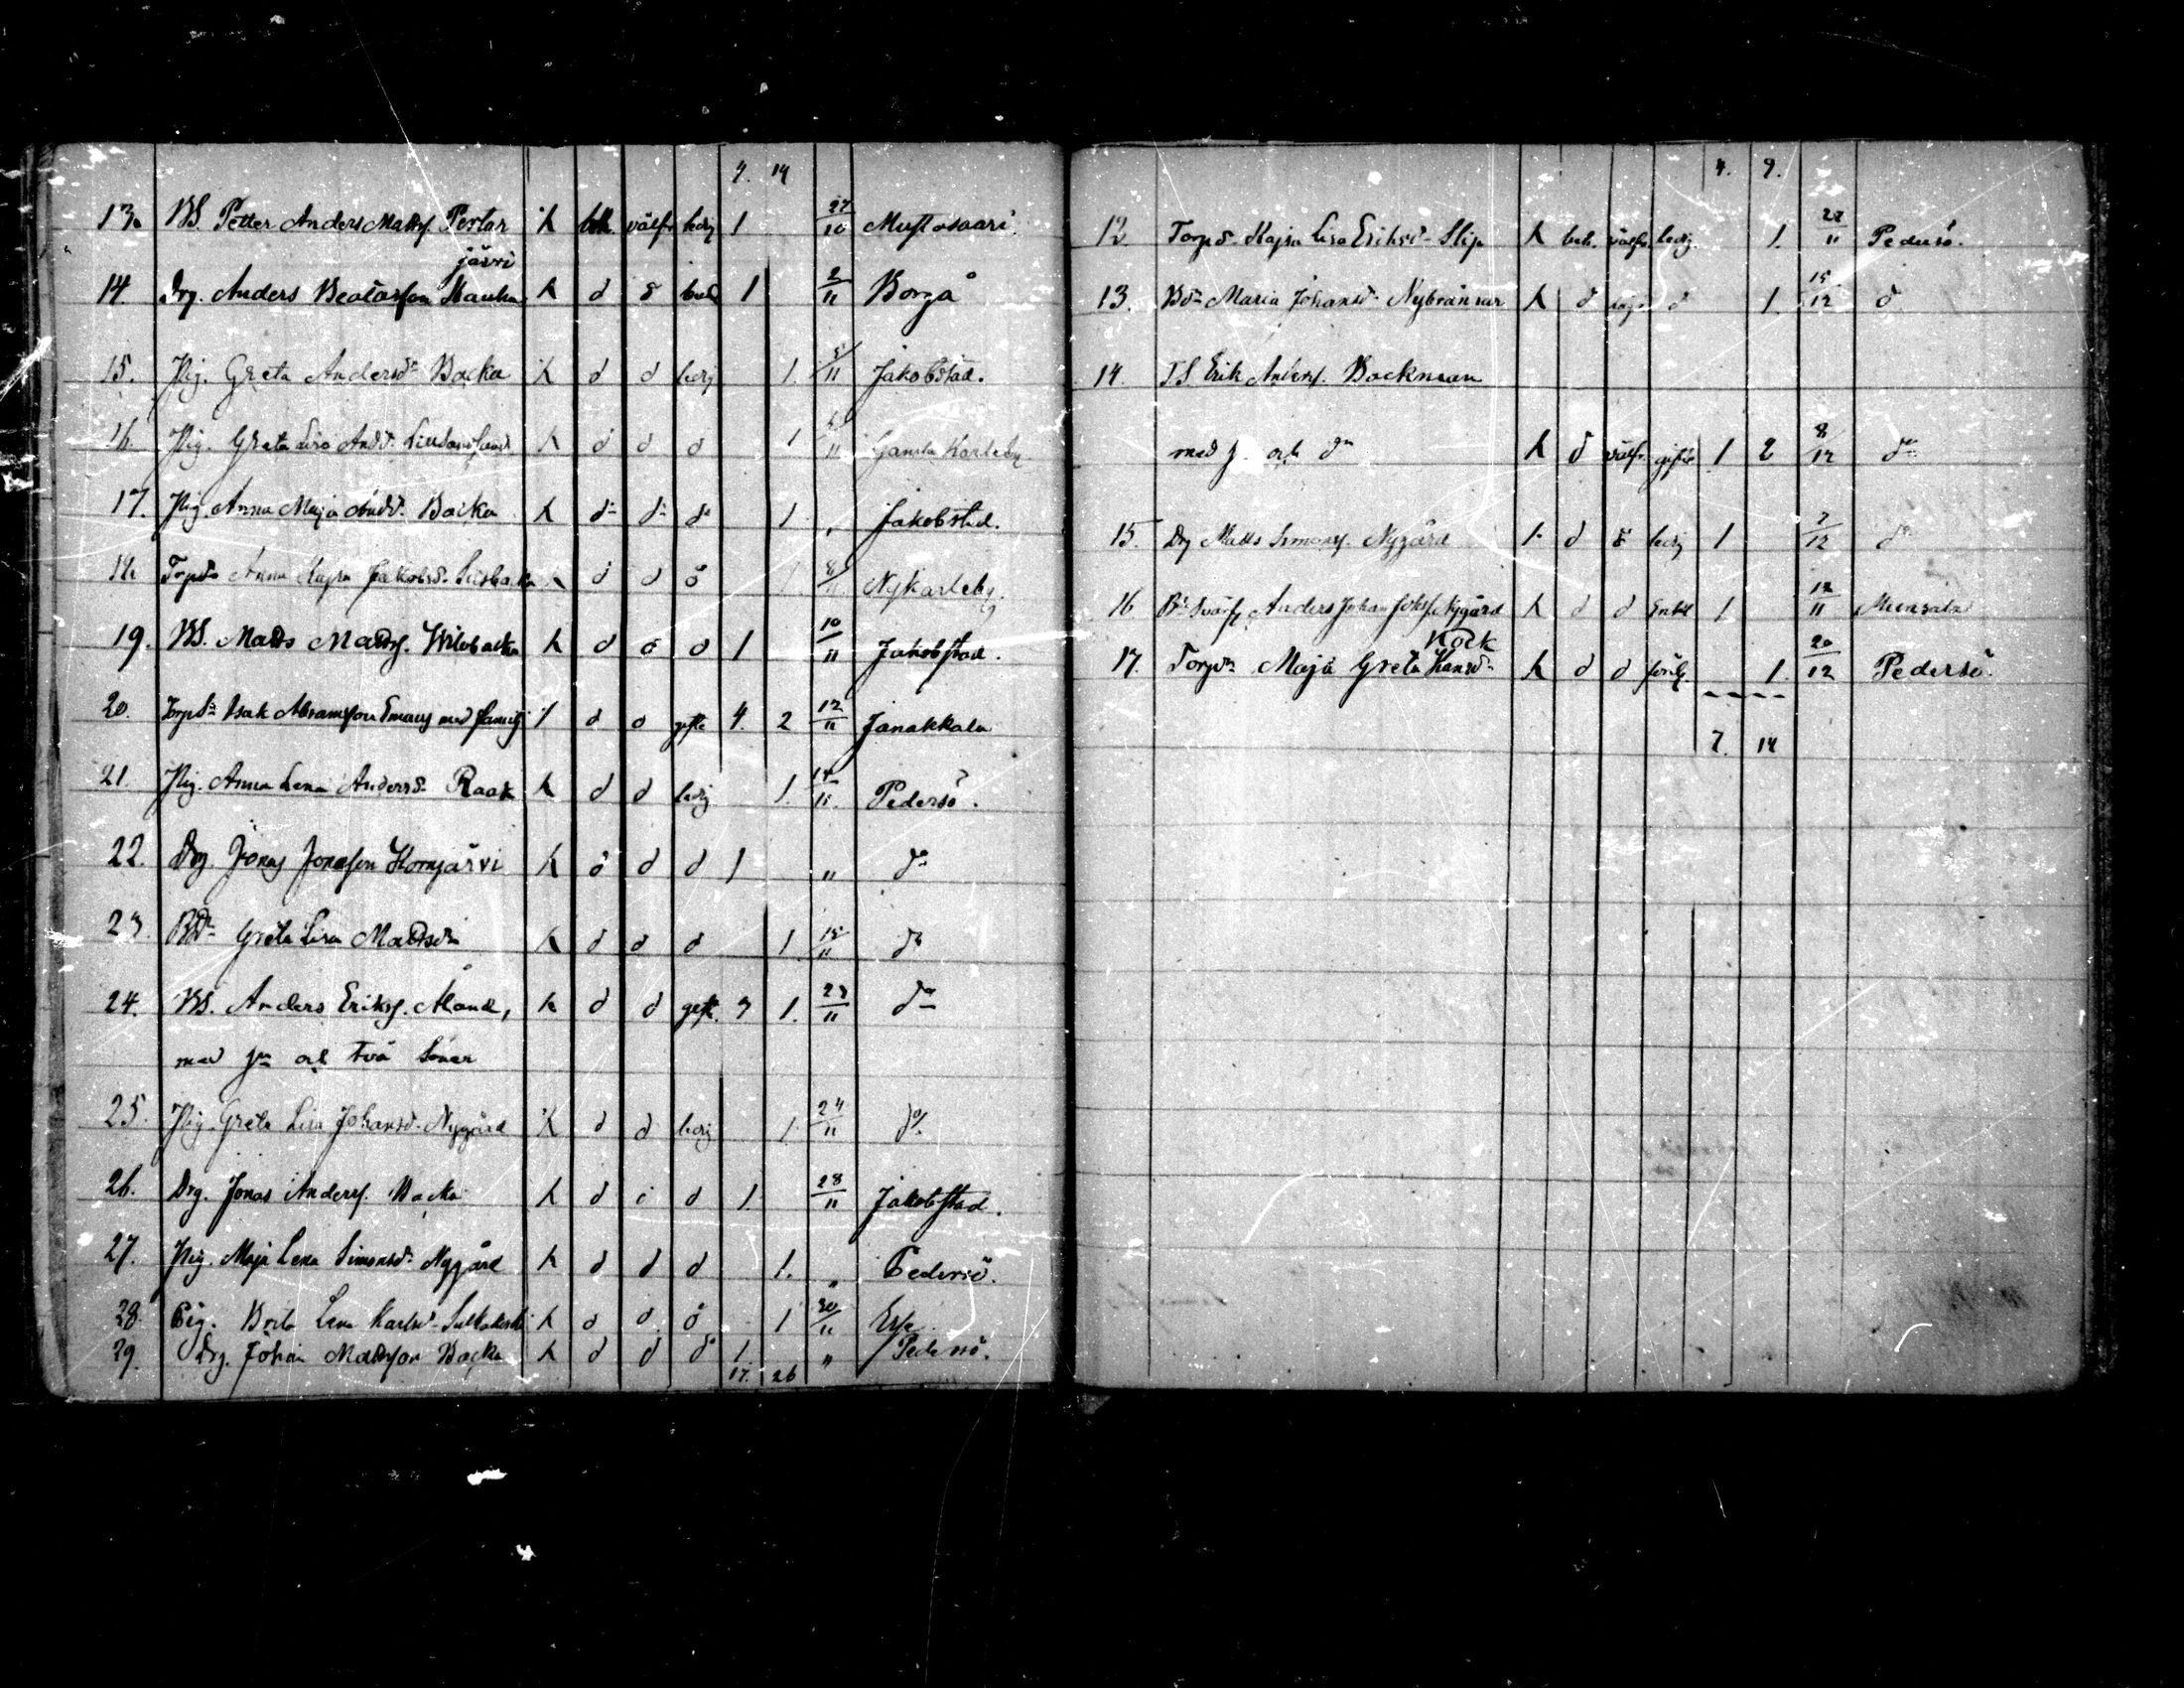 9. 14
13. BS. Petter Anders Mattss. Pertar h beh. välfr. ledig 1 27/10 Mustasaari.
järvi
14 Drg. Anders Beatasson Hauha h d d 1 2/11 Borgå
15. Pig. Greta Andersdr Backa h d d ledig 1. 5/11 Jakobstad.
16. Pig. Greta Lisa Andd. h d d d 1 11 Gamla Karleby.
17. Pig. Anna Maja Andd. Backa h d d d 1 „ Jakobstad.
18 Torpd. Anna Kajsa Jakobsd. h d d d 1 8/11 Nykarleby.
19. BS. Matts Mattss. h d d d 1 10/11 Jakobstad.
20. Torpd Isak Abramsson Emaus med familj h d d gifte 4. 2 12/11 Janakkala
21. Pig. Anna Lena Andersd. Raak h d d ledig 1. 14/11. Pedersö.
22. Drg. Jonas Jonasson Komjärvi h d d d 1 „ do
23 Bdr Greta Lisa Mattsdr h d d d 1. 15/11. do
24. BS. Anders Erikss. Åland, h d d gifte. 3 1. 23/11 do
med och två söner
25. Pig. Greta Lisa Johansd. Nygård h d d ledig 1 24/11 do
26. Drg. Jonas Anderss. Backa h d d d 1. 28/11 Jakobstad.
27. Pig. Maja Lena Simonsd. Nygård h d d d 1. „ Pedersö.
28. Pig. Brita Lena Karlsd. h d d d 1 30/11 Esse
29. Drg. Johan Mattsson Backa h d d d 1 „ Pedersö.
17. 26
4. 9.
12 Torpd. Kajsa Lisa Eriksd. Slip h beh. välfr. ledig. 1. 27/11 Pedersö.
13. Bdr Maria Johansd. Nybrännar h d d 1. 15/12 d
14. TS Erik Anderss. Backman
med h. och dr h d välfr. gifte 1 2 8/12 do
15. Drg Matts Simonss. Nygård h d d ledig 1 7/12 do
16 Anders Johan Johss. Nygård h d d Enkl 1 12/11 Munsala
Kock
17. Torpdr Maja Greta Hansd. h d d 1. 20/12 Pedersö.
7. 14